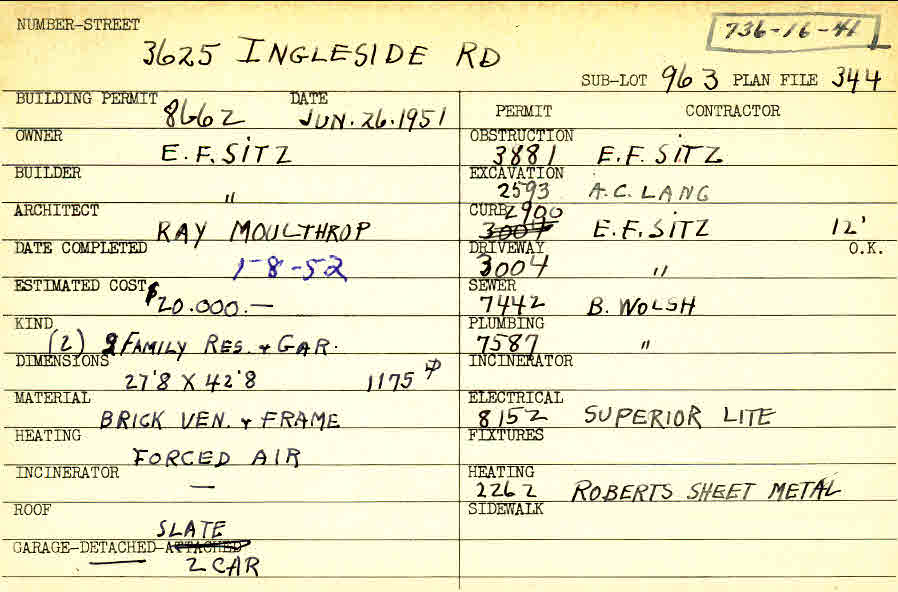 NUMBER-STREET
736-16-41
3625 INGLESIDE RD
SUB-LOT 963 PLAN FILE 344
BUILDING PERMIT 8662 DATE JUN. 26. 1951
OWNER E. F. SITZ
BUILDER "
ARCHITECT RAY MOULTHROP
DATE COMPLETED 1-8-52
ESTIMATED COST $20.000.—
KIND (2) 2 FAMILY RES. & GAR.
DIMENSIONS 27'8 X 42'8 1175
MATERIAL BRICK VEN. & FRAME
HEATING FORCED AIR
INCINERATOR —
ROOF SLATE
GARAGE-DETACHED-ATTACHED
2 CAR
PERMIT CONTRACTOR
OBSTRUCTION 3881 E. F. SITZ
EXCAVATION 2593 A. C. LANG
CURB 2900 3004 E. F. SITZ 12'
DRIVEWAY 3004 " O.K.
SEWER 7442 B. WOLSH
PLUMBING 7587 "
INCINERATOR
ELECTRICAL 8152 SUPERIOR LITE
FIXTURES
HEATING 2262 ROBERTS SHEET METAL
SIDEWALK